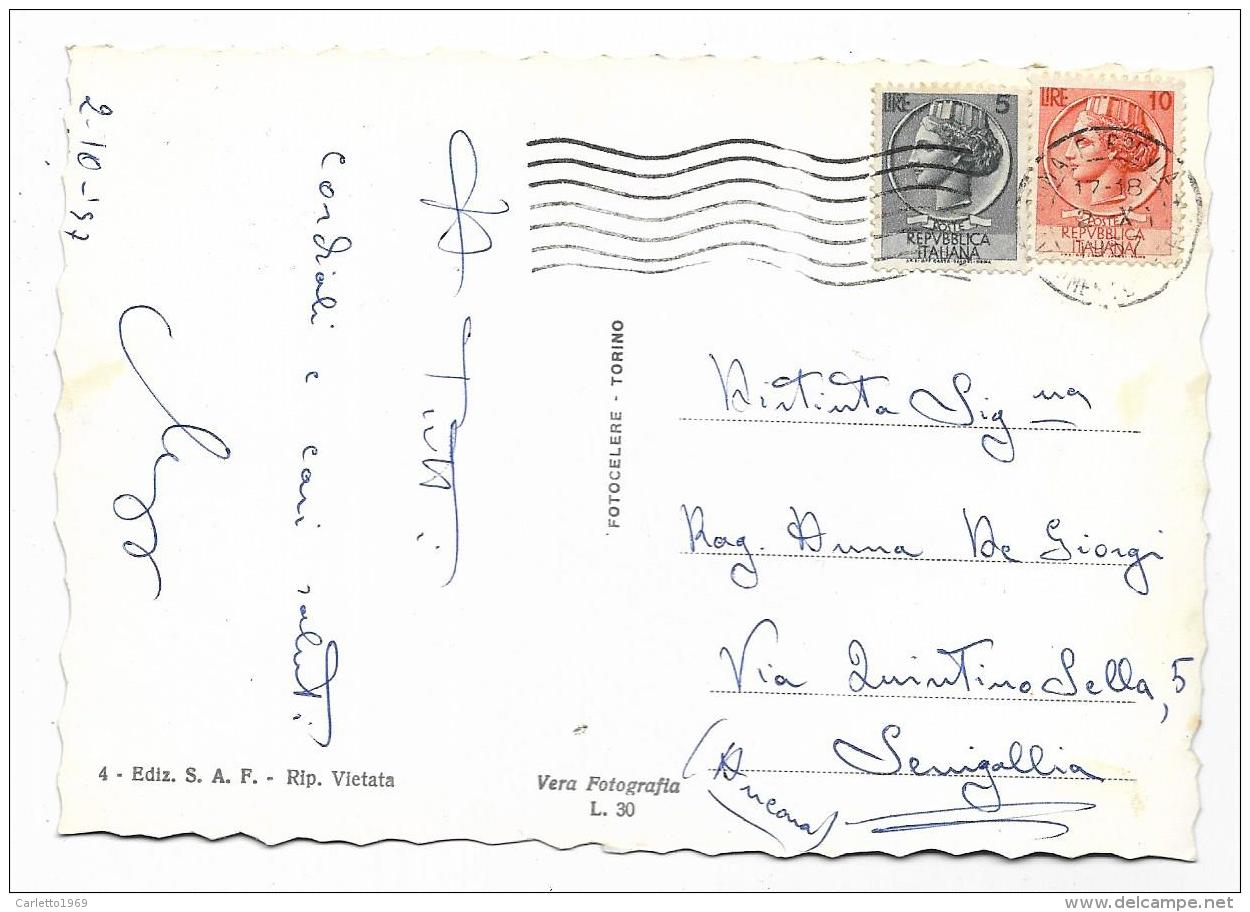 2-10-'57
cordiali e cari saluti
FOTOCELERE - TORINO
4 - Ediz. S. A. F. - Rip. Vietata
Vera Fotografia
L. 30
LIRE 5
POSTE
REPVBBLICA
ITALIANA
LIRE 10
POSTE
REPVBBLICA
ITALIANA
17-18
Distinta Sig na
Rag. Anna De Giorgi
Via Quintino Sella, 5
Senigallia
(Ancona)
Carletto1969
www.delcampe.net